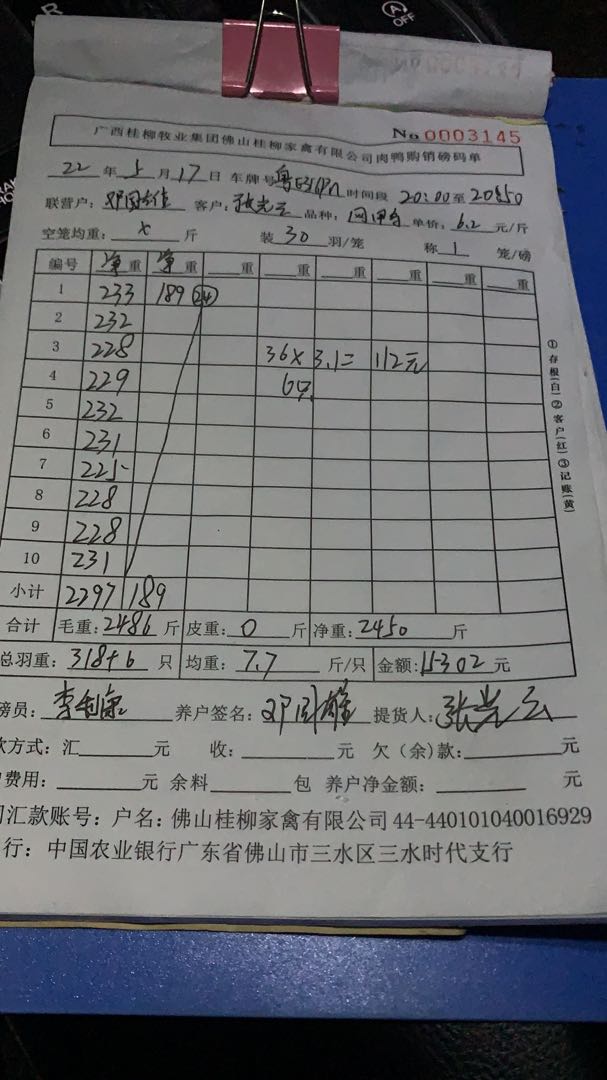 OFF
№ 0003145
广西桂柳牧业集团佛山桂柳家禽有限公司肉鸭购销磅码单
22 年 5 月 17 日 车牌号 时间段 20:00 至 20:50
联营户: 邓国雄 客户: 张光云 品种: 单价: 6.2 元/斤
空笼均重: x 斤 装 30 羽/笼 称 1 笼/磅
编号 净重 净重 重 重 重 重 重 重
1 233 189 24
2 232
3 228 36x3.1= 112元
4 229 6只
5 232
6 231
7 225
8 228
9 228
10 231
小计 2297 189
合计 毛重: 2486 斤 皮重: 0 斤 净重: 2450 斤
总羽重: 318+6 只 均重: 7.7 斤/只 金额: 15302 元
磅员: 养户签名: 邓国雄 提货人: 张光云
款方式: 汇 元 收: 元 欠(余)款: 元
费用: 元 余料 包 养户净金额: 元
汇款账号: 户名: 佛山桂柳家禽有限公司 44-440101040016929
行: 中国农业银行广东省佛山市三水区三水时代支行
①存根(白)②客户(红)③记账(黄)